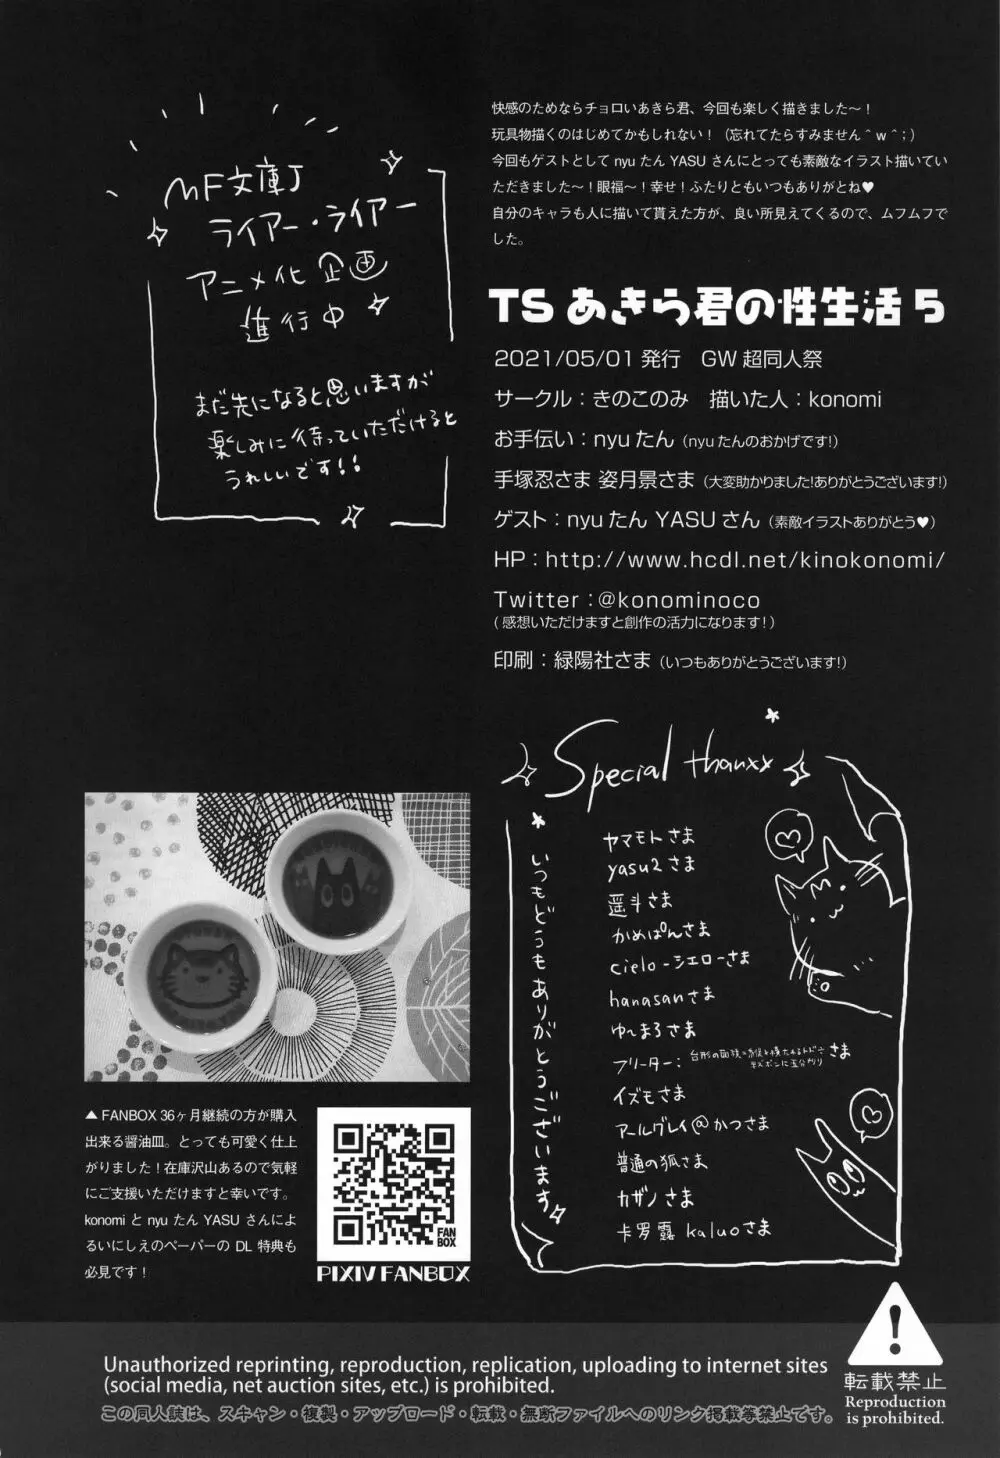 快感のためならチョロいあきら君、今回も楽しく描きました〜！
玩具物描くのはじめてかもしれない！（忘れてたらすみません＾ｗ＾；）
今回もゲストとして nyu たん YASU さんにとっても素敵なイラスト描いてい
ただきました〜！眼福〜！幸せ！ふたりともいつもありがとね♥
自分のキャラも人に描いて貰えた方が、良い所見えてくるので、ムフムフで
した。
MF文庫J
ライアー・ライアー
アニメ化企画
進行中
まだ先になると思いますが
楽しみに待っていただけると
うれしいです!!
TSあきら君の性生活5
2021/05/01 発行　GW超同人祭
サークル：きのこのみ　描いた人：konomi
お手伝い：nyuたん（nyuたんのおかげです!）
手塚忍さま 姿月景さま（大変助かりました!ありがとうございます!）
ゲスト：nyuたん YASUさん（素敵イラストありがとう♥）
HP：http://www.hcdl.net/kinokonomi/
Twitter：@konominoco
（感想いただけますと創作の活力になります！）
印刷：緑陽社さま（いつもありがとうございます!）
Special thanxx
いつもどうもありがとうございます
ヤマモトさま
yasu2さま
遥斗さま
かめぱんさま
cielo-シエローさま
hanasanさま
ゆ〜まろさま
フリーター：さま
イズモさま
アールグレイ@かつさま
普通の狐さま
カザノさま
卡罗露 kaluoさま
▲ FANBOX 36ヶ月継続の方が購入
出来る醤油皿。とっても可愛く仕上
がりました！在庫沢山あるので気軽
にご支援いただけますと幸いです。
konomi と nyu たん YASU さんによ
るいにしえのペーパーの DL 特典も
必見です！
FAN
BOX
PIXIV FANBOX
Unauthorized reprinting, reproduction, replication, uploading to internet sites
(social media, net auction sites, etc.) is prohibited.
この同人誌は、スキャン・複製・アップロード・転載・無断ファイルへのリンク掲載等禁止です。
転載禁止
Reproduction
is prohibited.